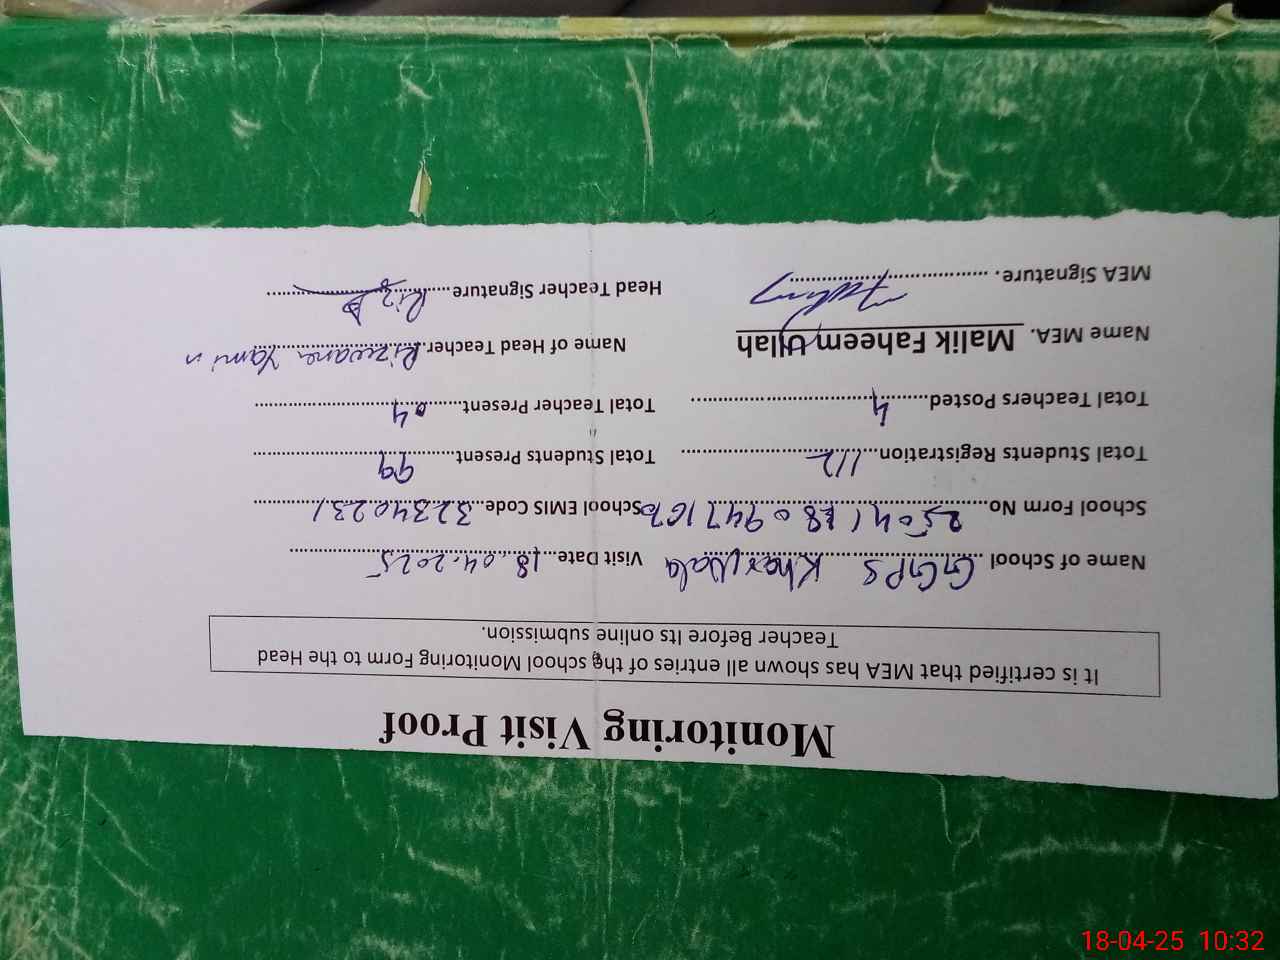 Monitoring Visit Proof
It is certified that MEA has shown all entries of the school Monitoring Form to the Head
Teacher Before Its online submission.
Name of School GGPS Kharwala Visit Date 18.04.2025
School Form No. School EMIS Code 32340231
Total Students Registration 112 Total Students Present 99
Total Teachers Posted 4 Total Teacher Present 04
Name MEA. Malik Faheem Ullah Name of Head Teacher Rizwana Yamin
MEA Signature. Head Teacher Signature
18-04-25 10:32